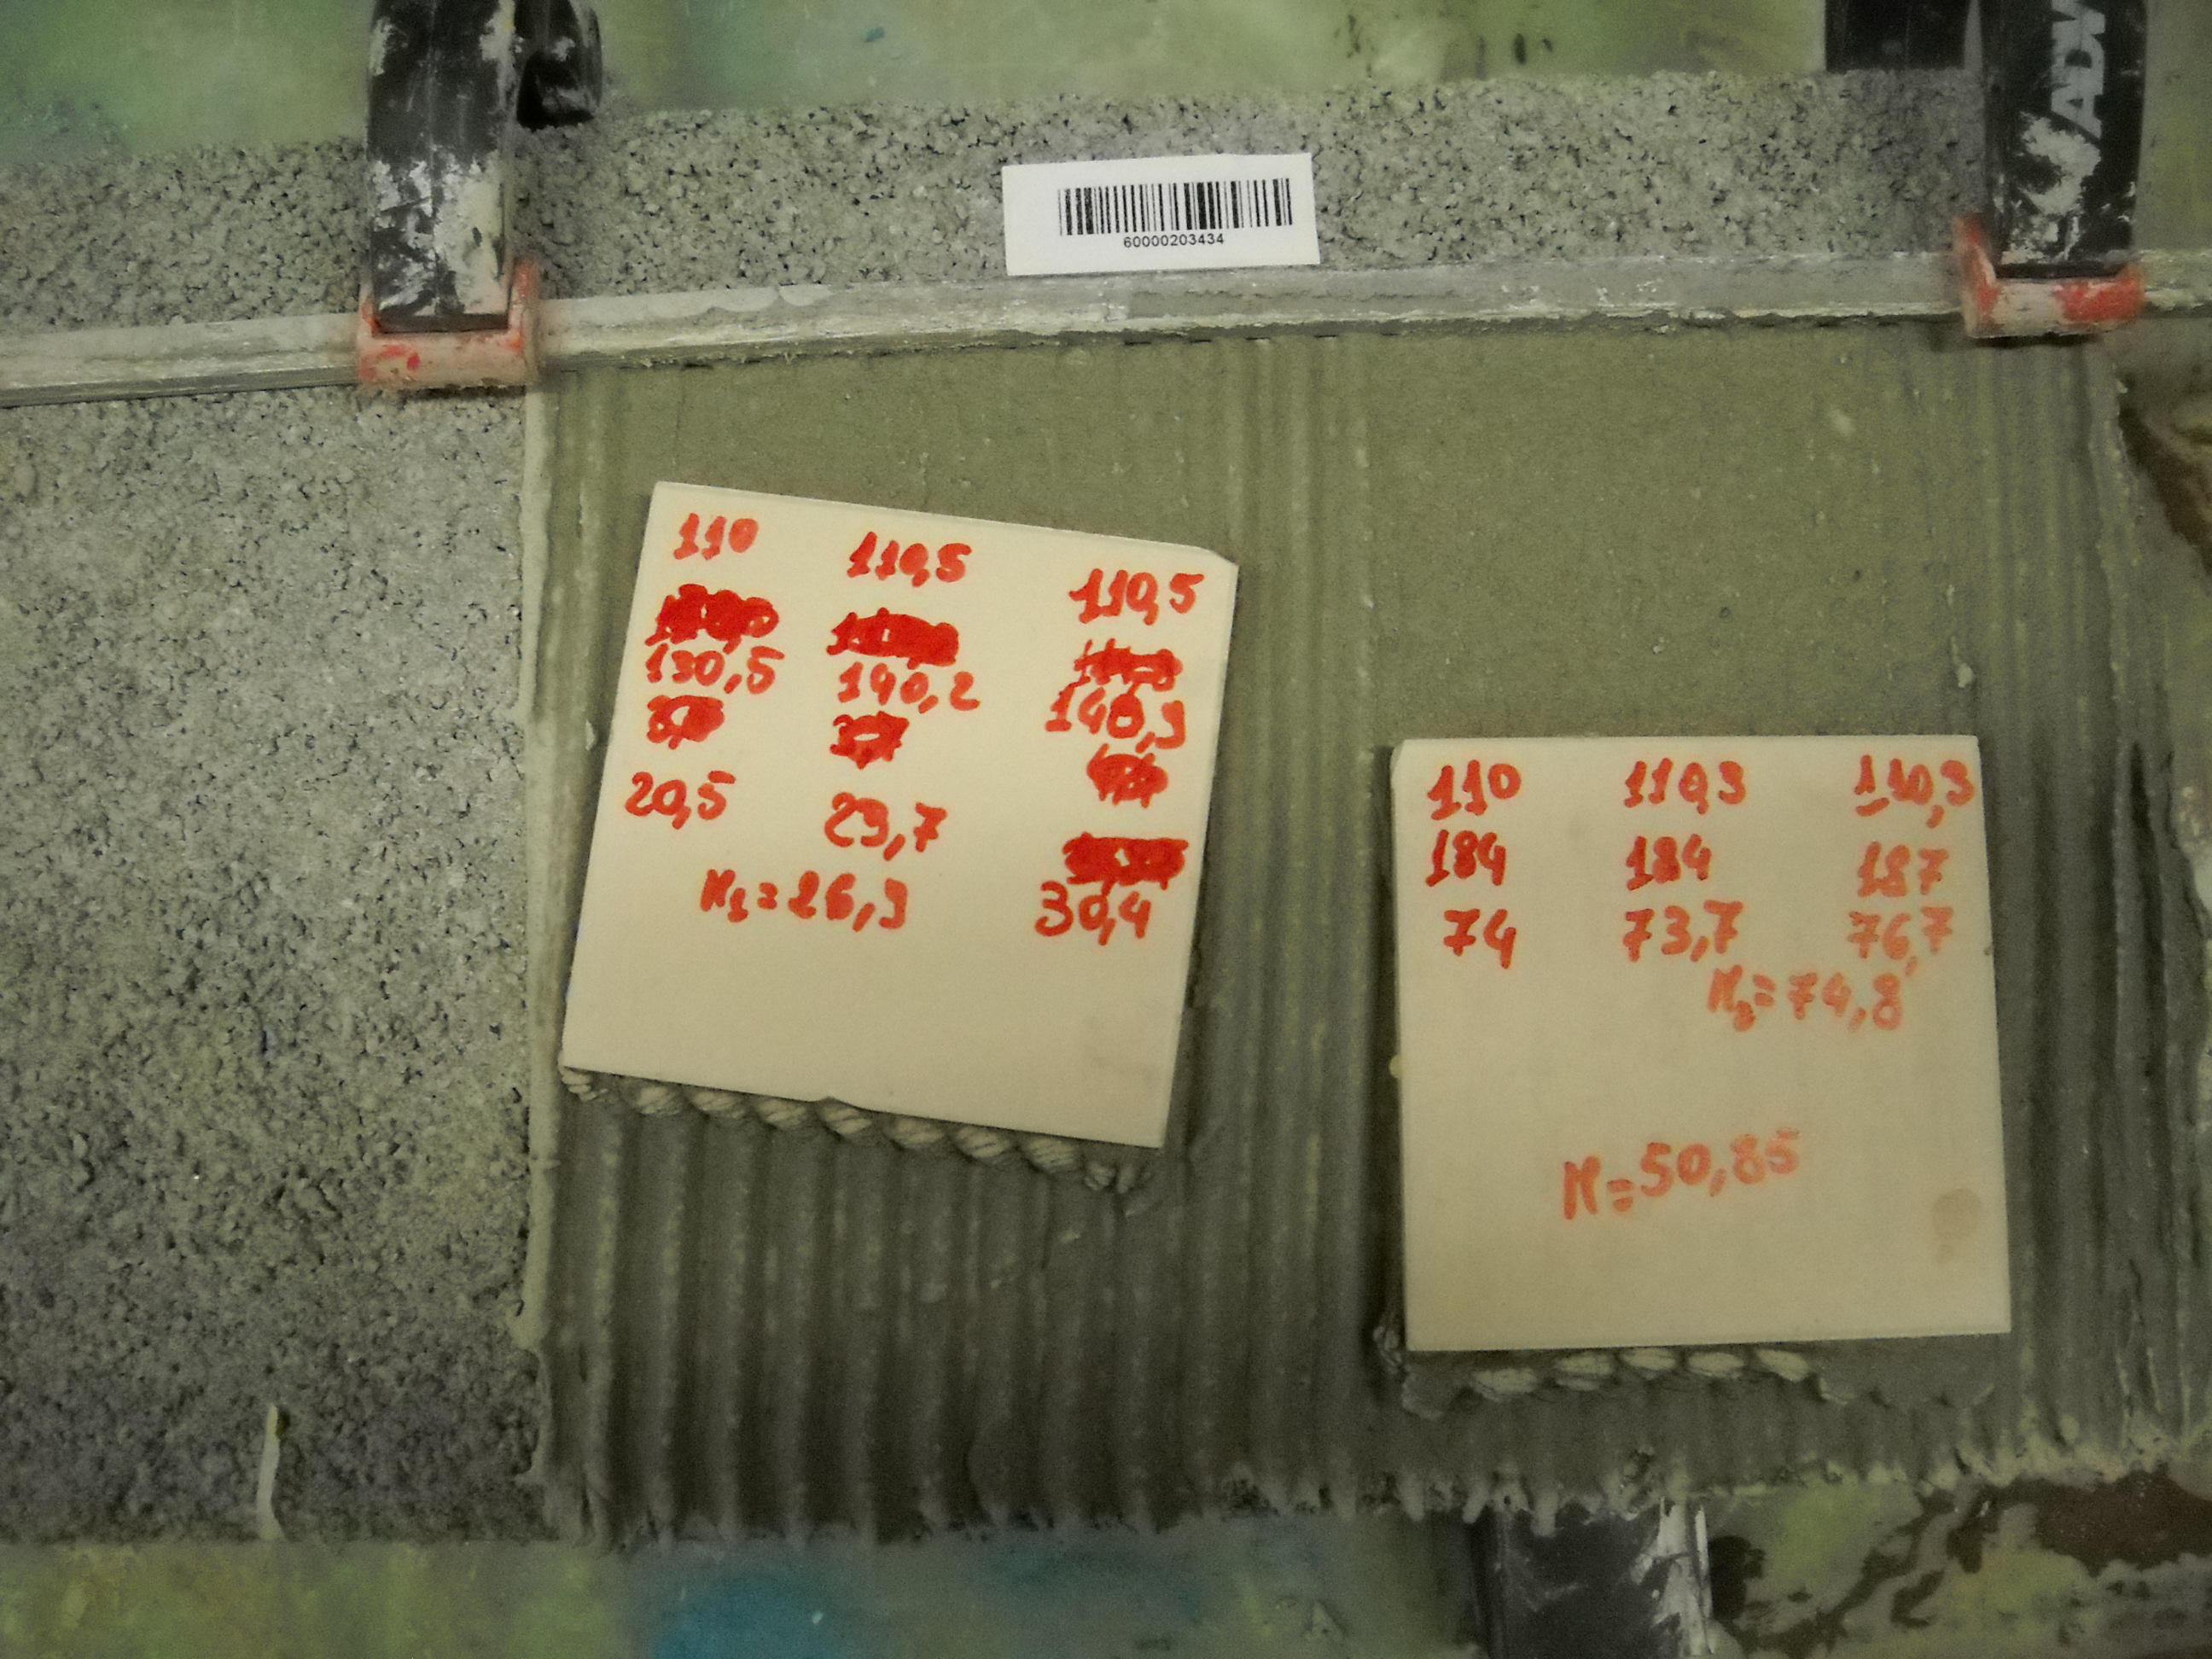 ADW
60000203434
110 110,5 110,5
130,5 140,2 140,9
20,5 29,7 30,4
M₁=26,9
110 110,3 110,3
184 184 187
74 73,7 76,7
M₂=74,8
M=50,85